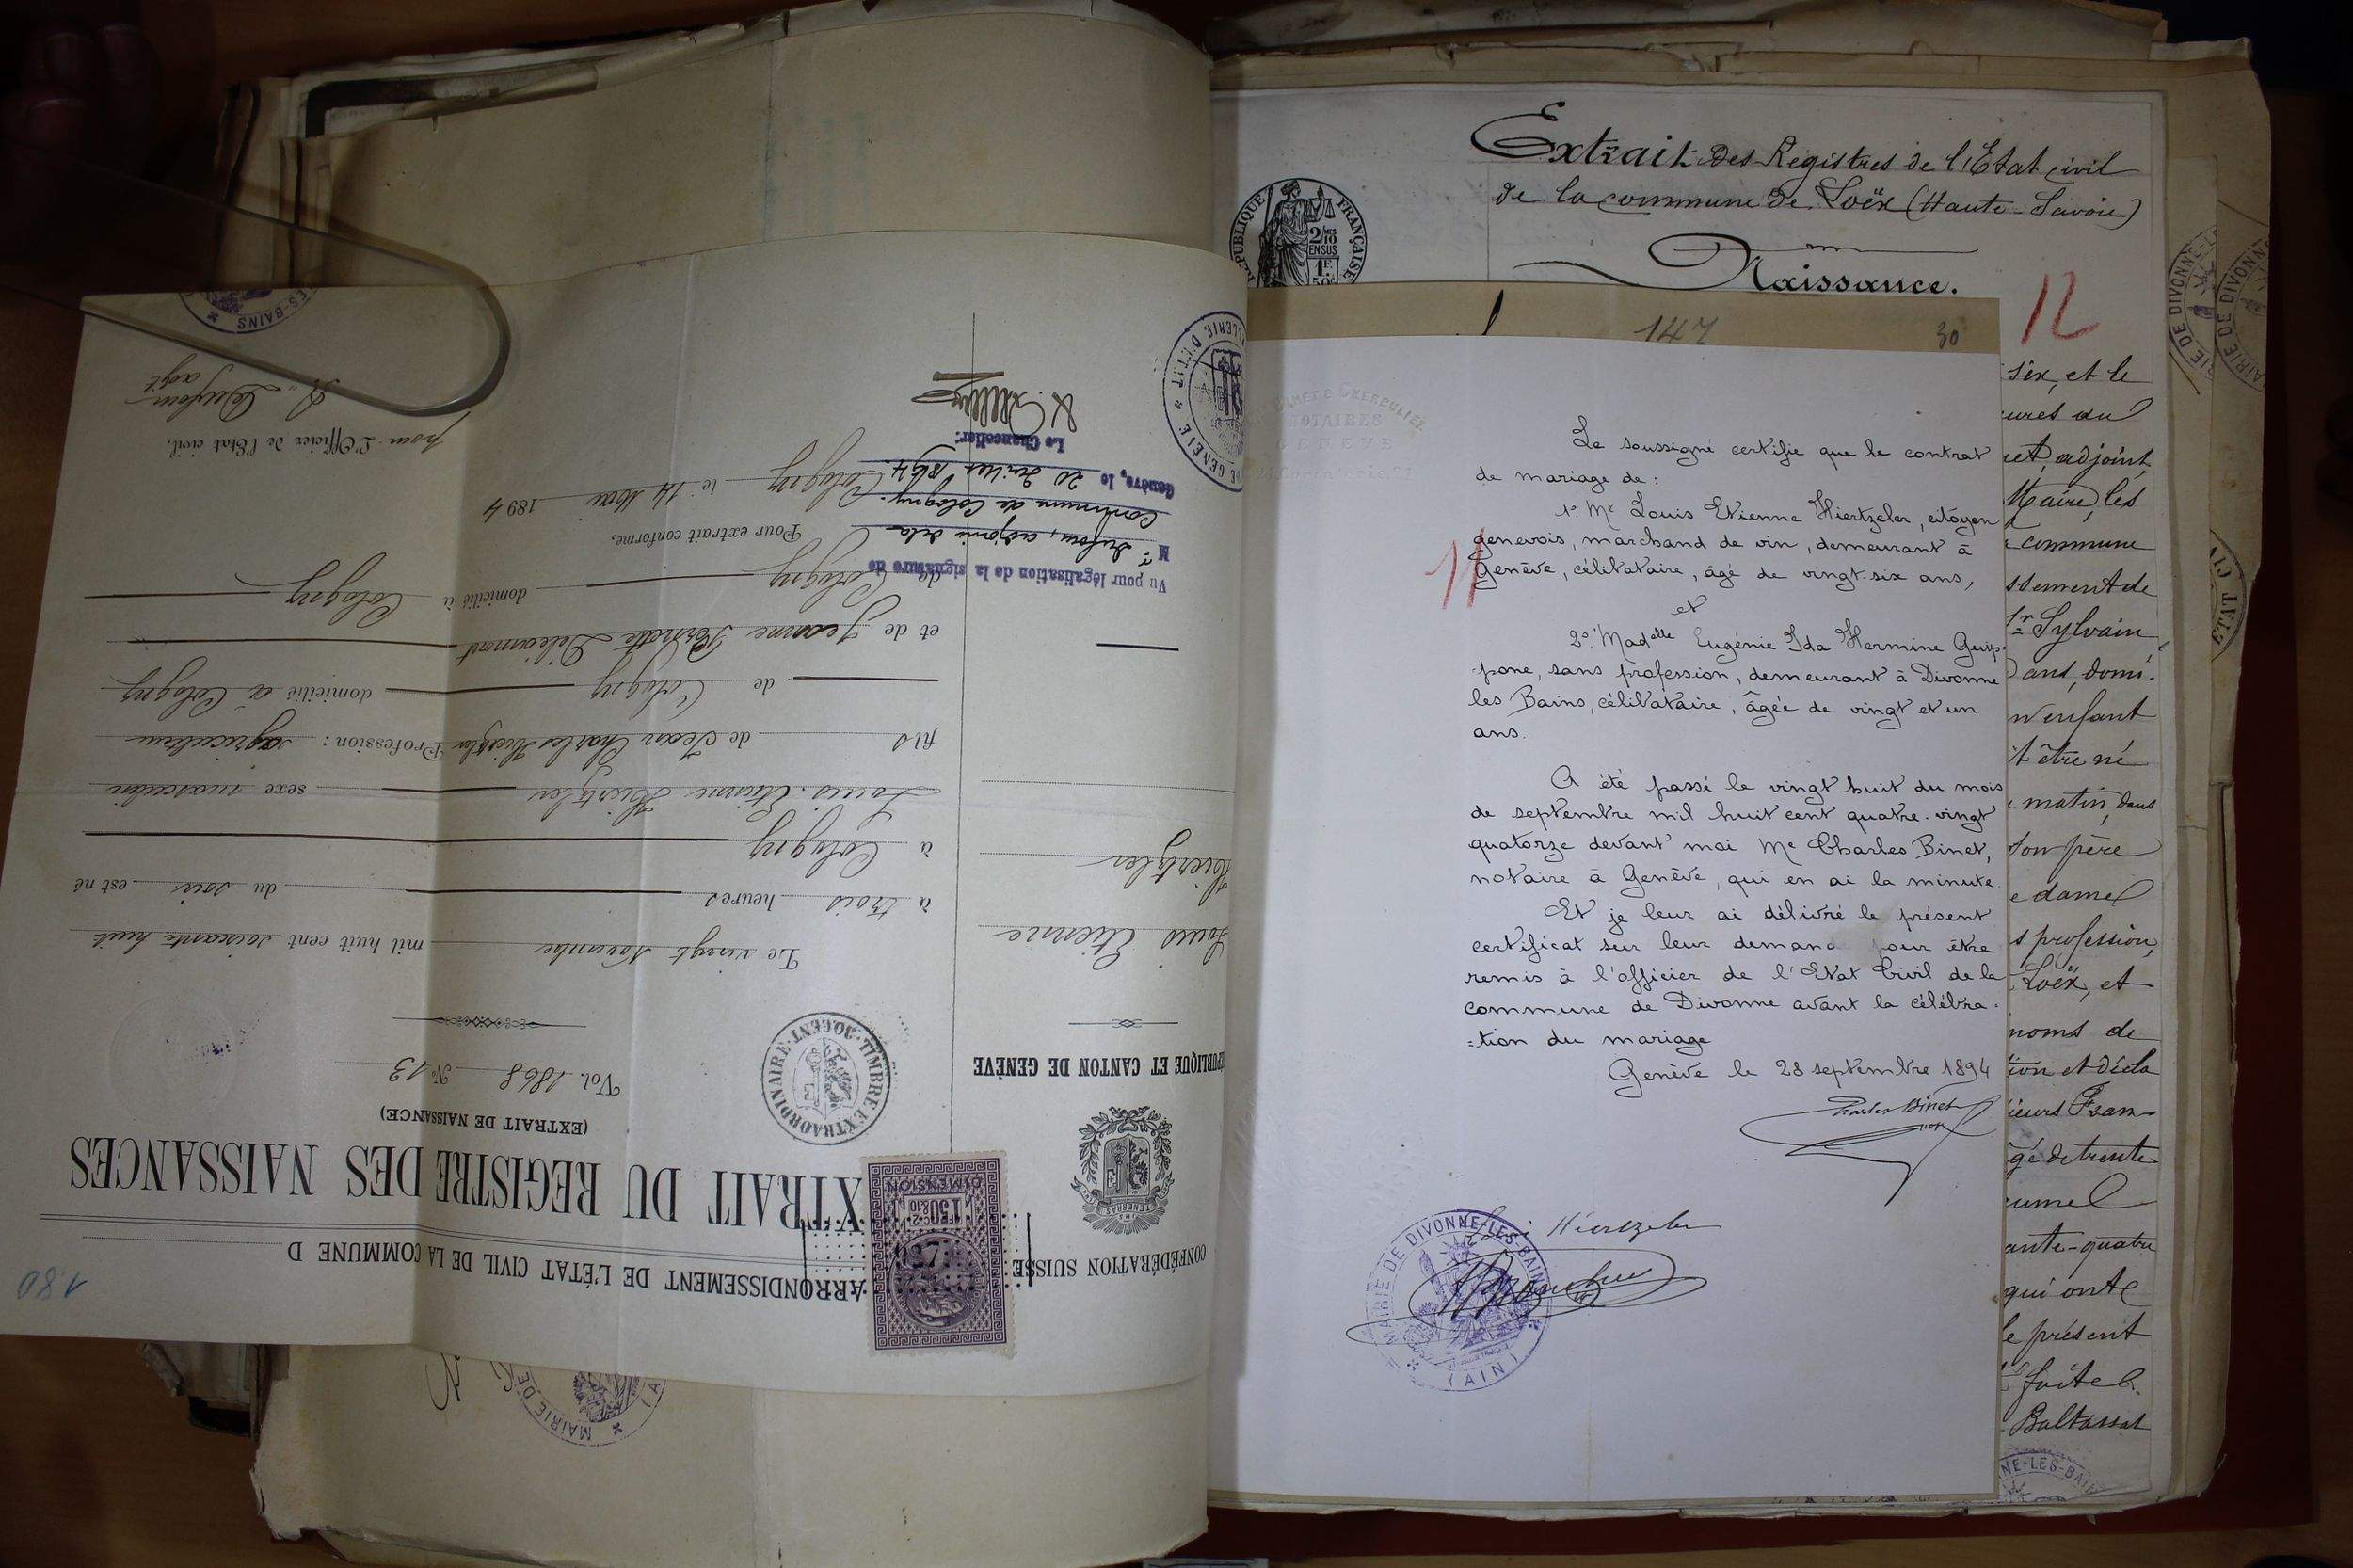 Extrait des Registres de l'Etat civil
de la commune de Loëx (Haute-Savoie)
Naissance.
RÉPUBLIQUE FRANÇAISE
2/10
EN SUS
1F
50c
12
147
30
six, et le
ures du
et, adjoint,
Maire, les
commune
ssement de
Sylvain,
ans, domi-
n enfant
t être né
matin, dans
son père
e dame
s profession,
Loëx, et
noms de
tion et décla
sieurs Fran-
gé de trente
ante-quatre
qui ont
le présent
faite.
Baltassat
NOTAIRES
GENÈVE
Le soussigné certifie que le contrat
de mariage de :
1º. Mr Louis Etienne Hiertzeler, citoyen
genevois, marchand de vin, demeurant à
Genève, célibataire, âgé de vingt-six ans,
et
2º. Madelle Eugénie Ida Hermine Guip-
-pone, sans profession, demeurant à Divonne
les Bains, célibataire, âgée de vingt et un
ans.
A été passé le vingt huit du mois
de septembre mil huit cent quatre-vingt
quatorze devant moi Me Charles Binet,
notaire à Genève, qui en ai la minute.
Et je leur ai délivré le présent
certificat sur leur demand pour être
remis à l'officier de l'Etat Civil de la
commune de Divonne avant la célébra-
=tion du mariage
Genève le 28 septembre 1894
Charles Binet
11
Hiertzeler
MAIRIE DE DIVONNE-LES-BAINS
(AIN)
180
CONFÉDÉRATION SUISSE
ARRONDISSEMENT DE L'ÉTAT CIVIL DE LA COMMUNE D
XTRAIT DU REGISTRE DES NAISSANCES
(EXTRAIT DE NAISSANCE)
DIMENSION
TIMBRE EXTRAORDINAIRE 30 CENT
Vol. 1868 No 13
RÉPUBLIQUE ET CANTON DE GENÈVE
Le vingt Novembre mil huit cent soixante huit
à trois heures du soir est né
à Cologny
Louis Etienne Hiertzler sexe masculin
fils de Jean Charles Hiertzler Profession : agriculteur
de Cologny domicilié à Cologny
et de Jeanne Pernette Déléamont
de Cologny domicilié à Cologny
Louis Etienne
Hiertzler
Pour extrait conforme,
Cologny le 14 Mai 1894
pour L'Officier de l'Etat civil,
Dufour
adjt
Vu pour légalisation de la signature de
Mr Dufour, adjoint de la
Commune de Cologny.
Genève, le 20 Juillet 1894
Le Chancelier:
MAIRIE DE